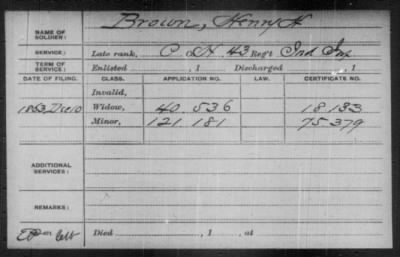 NAME OF SOLDIER: Brown, Henry H
SERVICE: Late rank, Co. H, 43 Reg't Ind Inf
TERM OF SERVICE: Enlisted , 1 Discharged , 1
DATE OF FILING. CLASS. APPLICATION NO. LAW. CERTIFICATE NO.
Invalid,
1863, Dec 10 Widow, 40.536 18133
Minor, 121.181 75379
ADDITIONAL SERVICES:
REMARKS:
Died , 1 , at